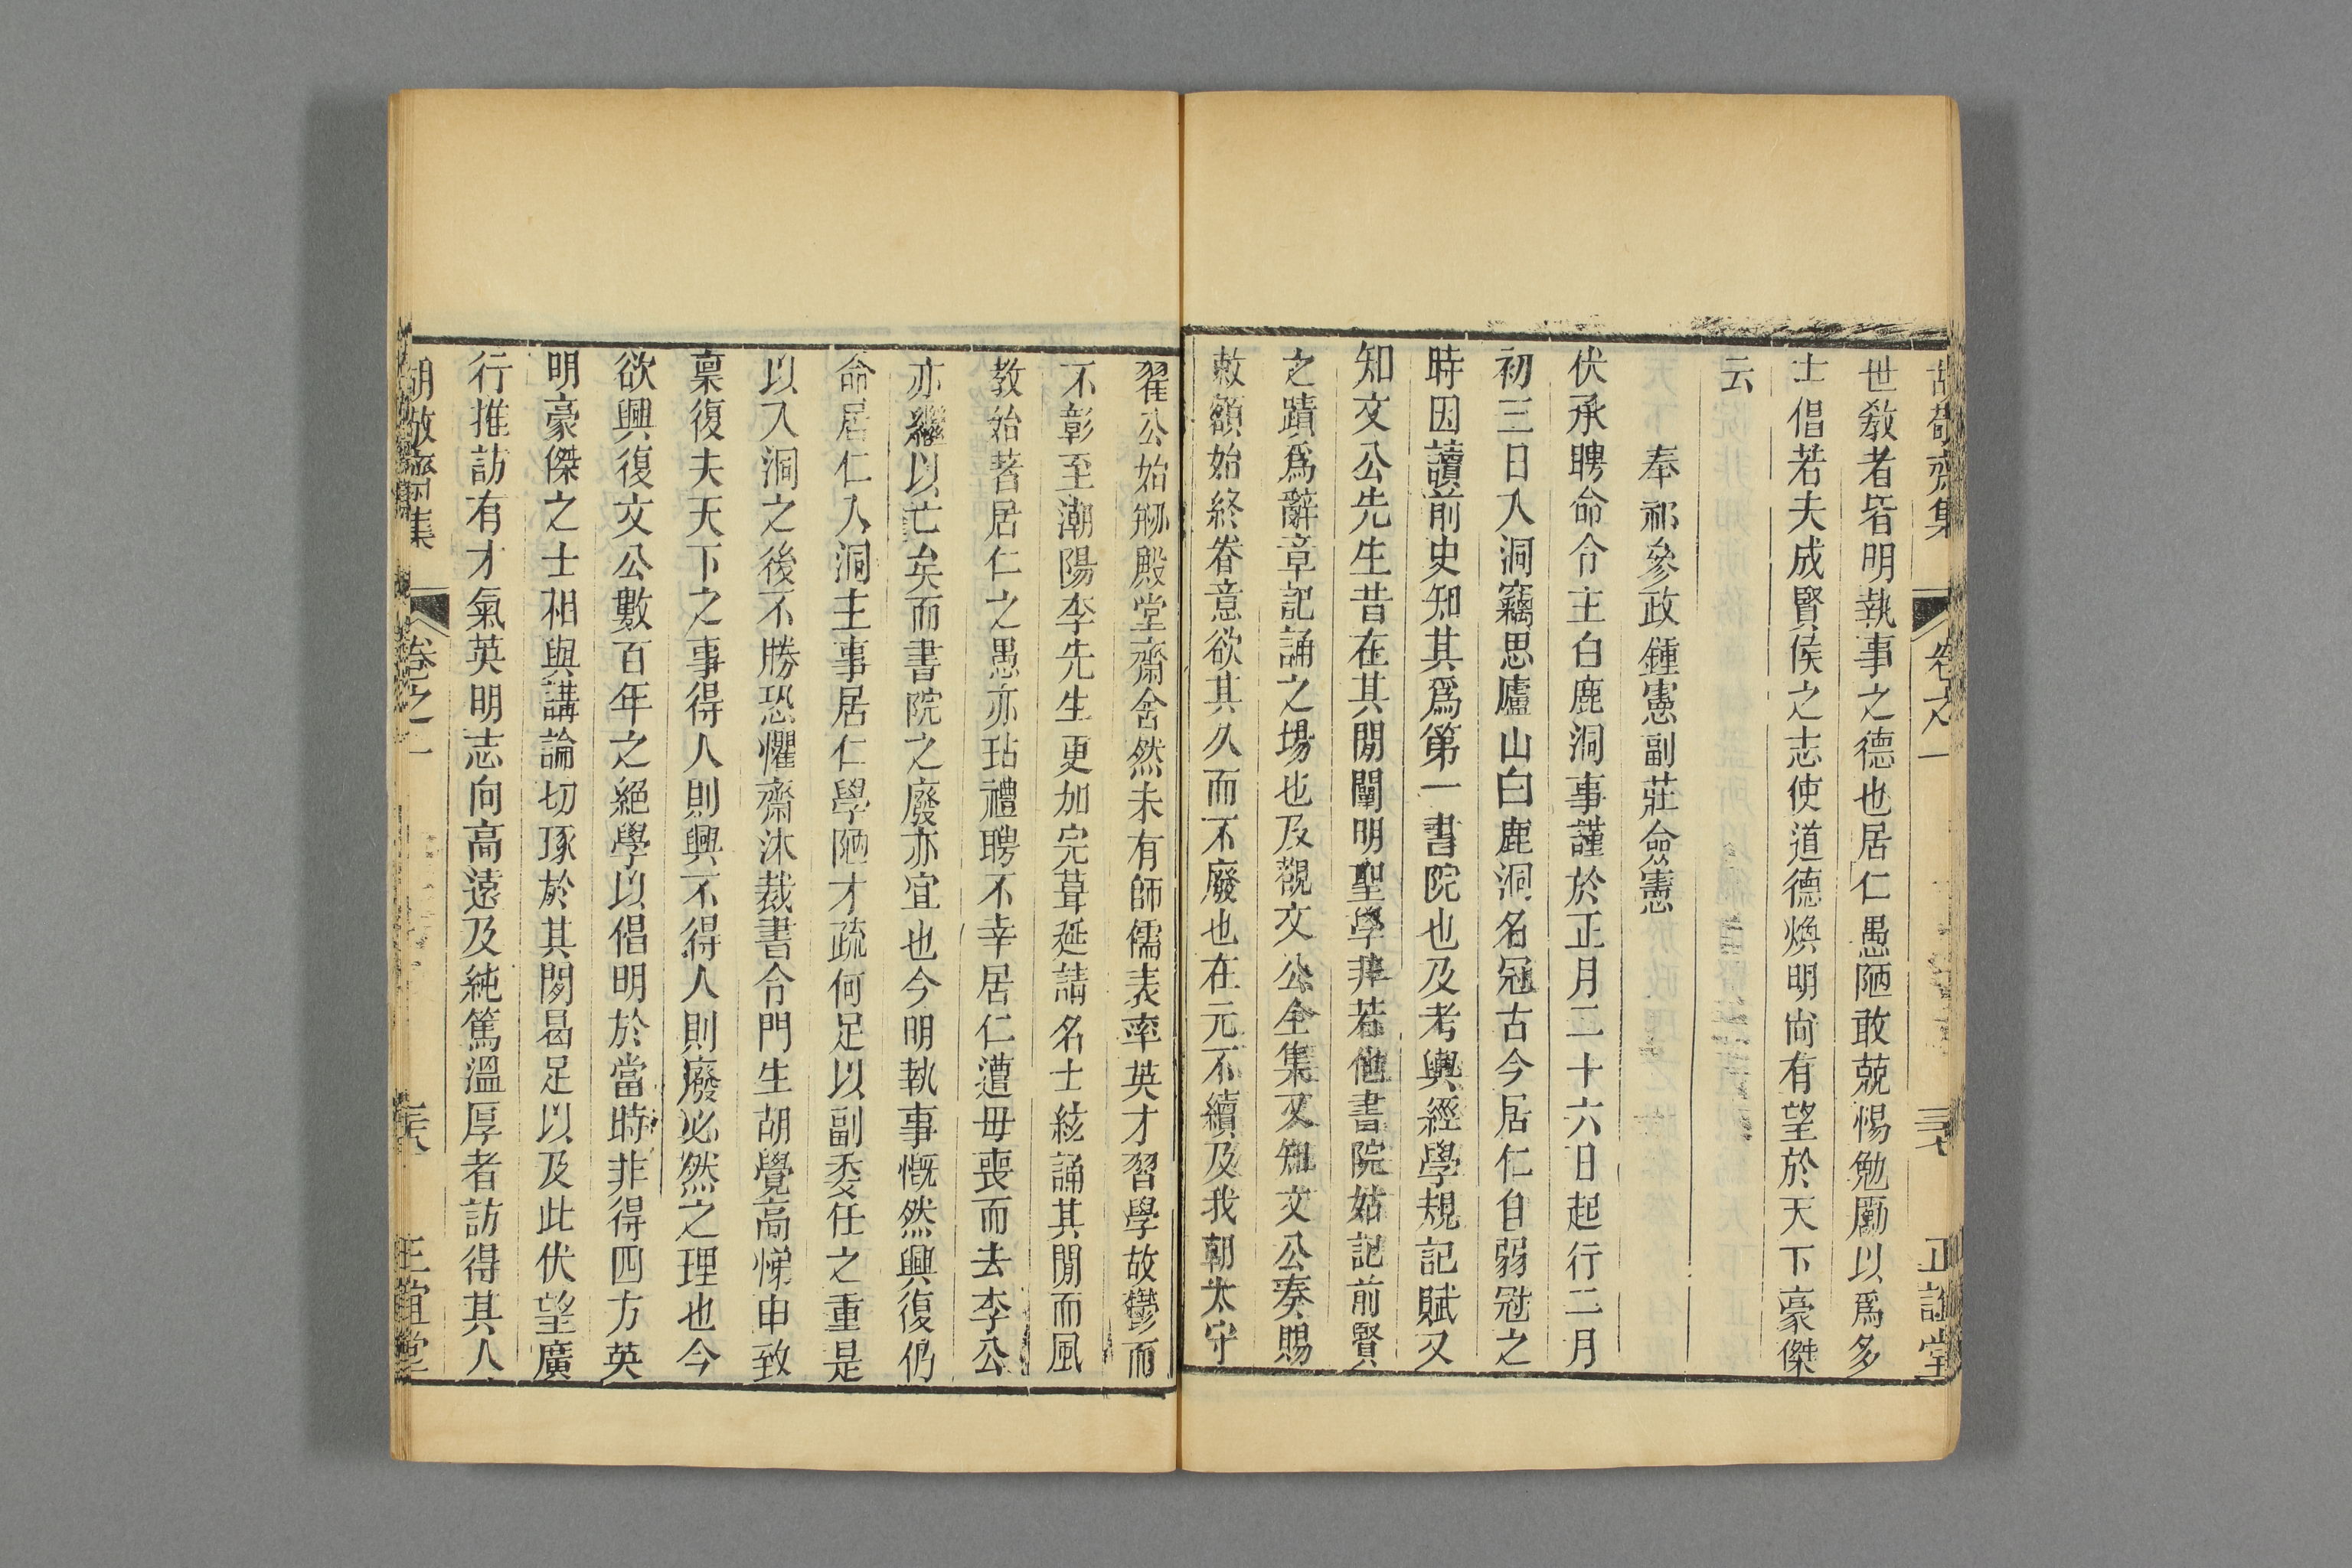 胡敬齋集 卷之一 正誼堂
世敎者皆明執事之德也居仁愚陋敢兢惕勉勵以爲多
士倡若夫成賢侯之志使道德煥明尚有望於天下豪傑
云
奉祁參政鍾憲副莊僉憲
伏承聘命令主白鹿洞事謹於正月二十六日起行二月
初三日入洞竊思廬山白鹿洞名冠古今居仁自弱冠之
時因讀前史知其爲第一書院也及考輿經學規記賦又
知文公先生昔在其閒闡明聖學非若他書院姑記前賢
之蹟爲辭章記誦之場也及觀文公全集又知文公奏賜
敕額始終眷意欲其久而不廢也在元不續及我朝太守
翟公始剏殿堂齋舍然未有師儒表率英才習學故鬱而
不彰至潮陽李先生更加完葺延請名士絃誦其閒而風
教始著居仁之愚亦玷禮聘不幸居仁遭毋喪而去李公
亦繼以亡矣而書院之廢亦宜也今明執事慨然興復仍
命居仁入洞主事居仁學陋才疏何足以副委任之重是
以入洞之後不勝恐懼齋沐裁書令門生胡覺高悌申致
稟復夫天下之事得人則興不得人則廢必然之理也今
欲興復文公數百年之絕學以倡明於當時非得四方英
明豪傑之士相與講論切琢於其閒曷足以及此伏望廣
行推訪有才氣英明志向高遠及純篤溫厚者訪得其人
胡敬齋集 卷之一 正誼堂